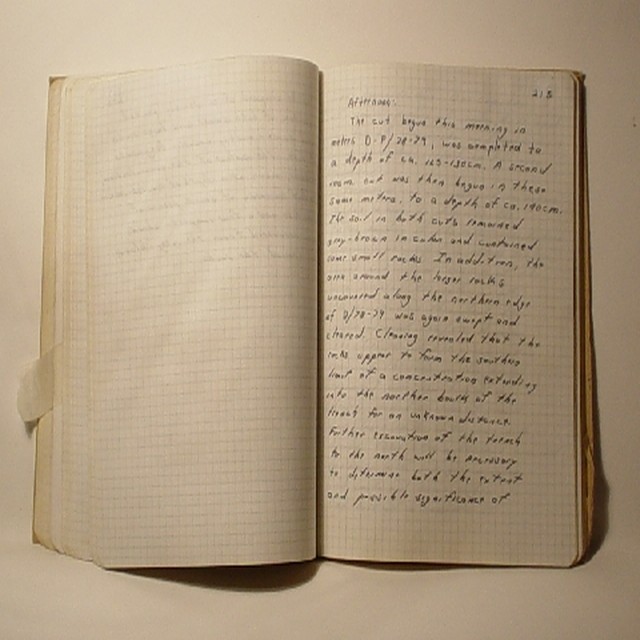 215
Afternoon:
The cut begun this morning in
meters D-F/28-29, was completed to
a depth of ca. 125-130cm. A second
cut was then begun in these
same meters, to a depth of ca. 140cm.
The soil in both cuts remained
gray-brown in color and contained
some small rocks. In addition, the
area around the larger rocks
uncovered along the northern edge
of D/28-29 was again swept and
cleared. Cleaning revealed that the
rocks appear to form the southern
limit of a concentration extending
into the northern baulk of the
trench for an unknown distance.
Further excavation of the trench
to the north will be necessary
to determine both the extent
and possible significance of